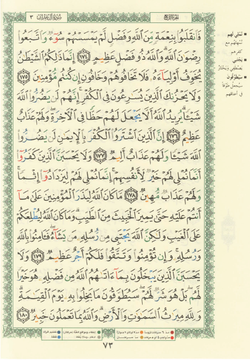 فَانقَلَبُوا بِنِعْمَةٍ مِّنَ اللَّهِ وَفَضْلٍ لَّمْ يَمْسَسْهُمْ سُوءٌ وَاتَّبَعُوا
رِضْوَانَ اللَّهِ وَاللَّهُ ذُو فَضْلٍ عَظِيمٍ ﴿١٧٤﴾ إِنَّمَا ذَٰلِكُمُ الشَّيْطَانُ
يُخَوِّفُ أَوْلِيَاءَهُ فَلَا تَخَافُوهُمْ وَخَافُونِ إِن كُنتُم مُّؤْمِنِينَ ﴿١٧٥﴾
وَلَا يَحْزُنكَ الَّذِينَ يُسَارِعُونَ فِي الْكُفْرِ إِنَّهُمْ لَن يَضُرُّوا اللَّهَ
شَيْئًا يُرِيدُ اللَّهُ أَلَّا يَجْعَلَ لَهُمْ حَظًّا فِي الْآخِرَةِ وَلَهُمْ عَذَابٌ
عَظِيمٌ ﴿١٧٦﴾ إِنَّ الَّذِينَ اشْتَرَوُا الْكُفْرَ بِالْإِيمَانِ لَن يَضُرُّوا اللَّهَ
شَيْئًا وَلَهُمْ عَذَابٌ أَلِيمٌ ﴿١٧٧﴾ وَلَا يَحْسَبَنَّ الَّذِينَ كَفَرُوا
أَنَّمَا نُمْلِي لَهُمْ خَيْرٌ لِّأَنفُسِهِمْ إِنَّمَا نُمْلِي لَهُمْ لِيَزْدَادُوا إِثْمًا
وَلَهُمْ عَذَابٌ مُّهِينٌ ﴿١٧٨﴾ مَّا كَانَ اللَّهُ لِيَذَرَ الْمُؤْمِنِينَ عَلَىٰ مَا
أَنتُمْ عَلَيْهِ حَتَّىٰ يَمِيزَ الْخَبِيثَ مِنَ الطَّيِّبِ وَمَا كَانَ اللَّهُ لِيُطْلِعَكُمْ
عَلَى الْغَيْبِ وَلَٰكِنَّ اللَّهَ يَجْتَبِي مِن رُّسُلِهِ مَن يَشَاءُ فَآمِنُوا بِاللَّهِ
وَرُسُلِهِ وَإِن تُؤْمِنُوا وَتَتَّقُوا فَلَكُمْ أَجْرٌ عَظِيمٌ ﴿١٧٩﴾ وَلَا
يَحْسَبَنَّ الَّذِينَ يَبْخَلُونَ بِمَا آتَاهُمُ اللَّهُ مِن فَضْلِهِ هُوَ خَيْرًا
لَّهُم بَلْ هُوَ شَرٌّ لَّهُمْ سَيُطَوَّقُونَ مَا بَخِلُوا بِهِ يَوْمَ الْقِيَامَةِ
وَلِلَّهِ مِيرَاثُ السَّمَاوَاتِ وَالْأَرْضِ وَاللَّهُ بِمَا تَعْمَلُونَ خَبِيرٌ ﴿١٨٠﴾
٧٣